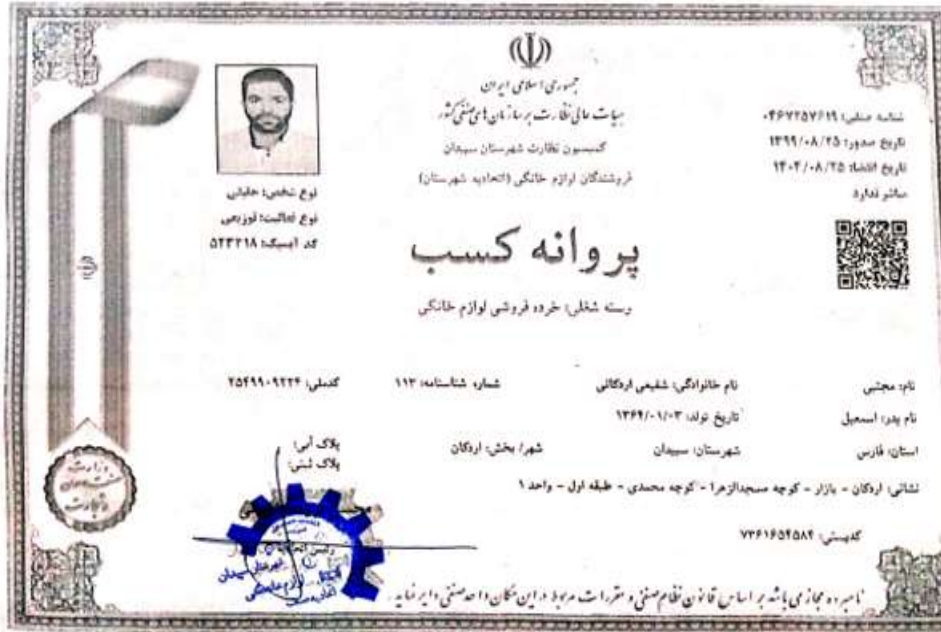 جمهوری اسلامی ایران
هیات عالی نظارت بر سازمان های صنفی کشور
کمیسیون نظارت شهرستان سپیدان
فروشندگان لوازم خانگی (اتحادیه شهرستان)
شناسه صنفی: ۰۴۶۷۲۵۷۶۱۹
تاریخ صدور: ۱۳۹۹/۰۸/۲۵
تاریخ انقضا: ۱۴۰۴/۰۸/۲۵
مباشر ندارد
نوع شخص: حقیقی
نوع فعالیت: توزیعی
کد آیسیک: ۵۲۳۲۱۸
پروانه کسب
رسته شغلی: خرده فروشی لوازم خانگی
نام: مجتبی نام خانوادگی: شفیعی اردکانی شماره شناسنامه: ۱۱۳ کدملی: ۲۵۴۹۹۰۹۲۲۴
نام پدر: اسمعیل تاریخ تولد: ۱۳۶۴/۰۱/۰۳
استان: فارس شهرستان: سپیدان شهر/ بخش: اردکان پلاک آبی:
پلاک ثبتی:
نشانی: اردکان - بازار - کوچه مسجدالزهرا - کوچه محمدی - طبقه اول - واحد ۱
کدپستی: ۷۳۶۱۶۵۴۵۸۴
نامبرده مجاز می باشد بر اساس قانون نظام صنفی و مقررات مربوط در این مکان واحد صنفی دایر نماید.
وزارت صنعت معدن و تجارت
رئیس اتحادیه
شهرستان سپیدان
لوازم خانگی